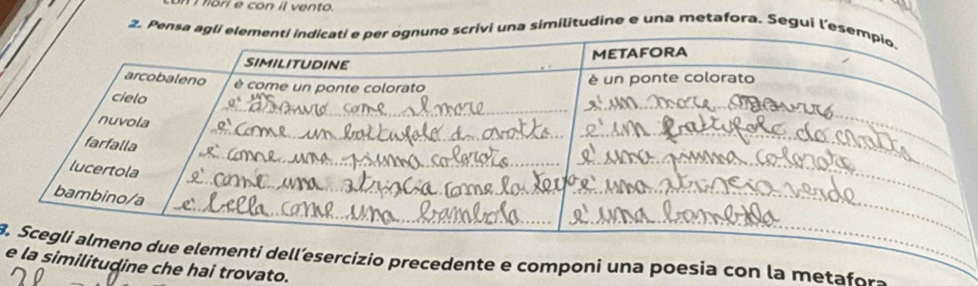 fiori e con il vento.
2. Pensa agli elementi indicati e per ognuno scrivi una similitudine e una metafora. Segui l'esempio.
SIMILITUDINE METAFORA
arcobaleno è come un ponte colorato è un ponte colorato
cielo e' azzurro come il mare e' un mare azzurro
nuvola e' come un battufolo di ovatta e' un battufolo di ovatta
farfalla e' come una piuma colorata e' una piuma colorata
lucertola e' come una striscia come la e' una striscia verde
bambino/a e' bella come una bambola e' una bambola
3. Scegli almeno due elementi dell'esercizio precedente e componi una poesia con la metafora
e la similitudine che hai trovato.